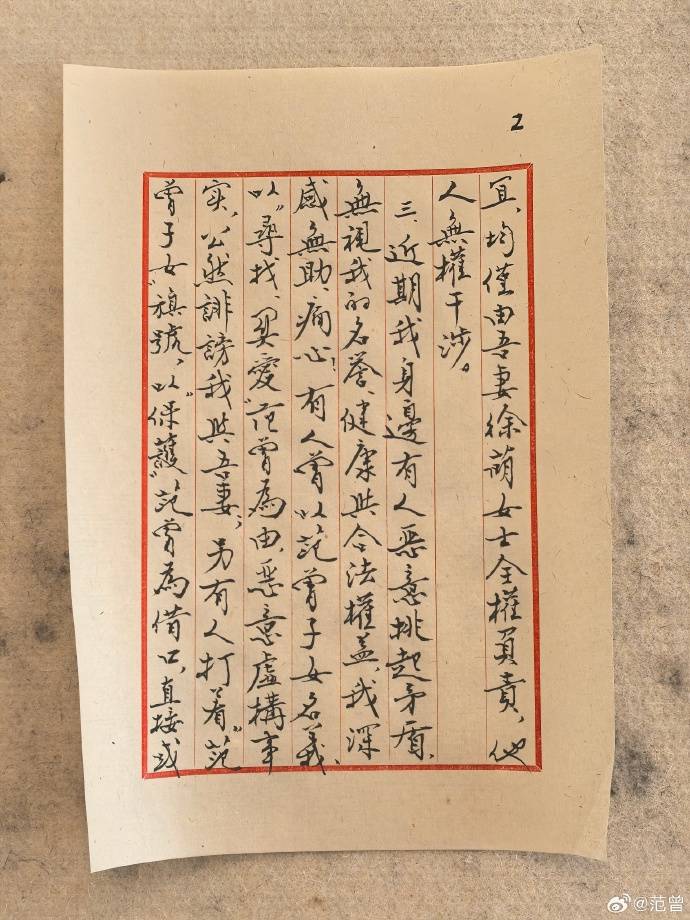 2
宜，均僅由吾妻徐萌女士全權負責，他
人無權干涉。
三、近期我身邊有人惡意挑起矛盾，
無視我的名譽、健康與合法權益，我深
感無助、痛心！有人曾以范曾子女名義、
以“尋找、関愛”范曾為由，惡意虛構事
实，公然誹謗我與吾妻；另有人打着“范
曾子女”旗號，以“保護”范曾為借口，直接或
@范曾